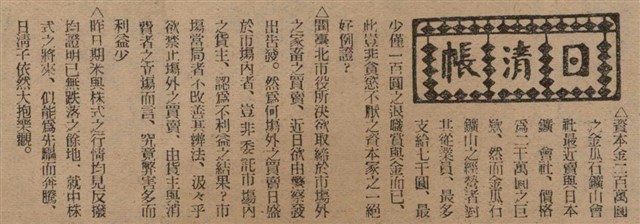 日清帳
△資本金二百萬圓
之金瓜石鑛山會
社最近賣與日本
鑛業會社、價格
爲二千萬圓之巨
款、然而金瓜石
鑛山之經營者對
其從業員、最多
支給七千圓、最
少僅一百圓之退職賞與金而已、
此豈非貪慾不厭之資本家之一絕
好例證?
△聞臺北市役所決欲取締於市場外
之家畜之買賣、近日欲由警察發
出告發。然爲何場外之買賣日盛
於市場內者、豈非委託市場內
之貨主、認爲不利益之結果?市
場當局者不改善其辦法、汲々乎
欲禁止場外之買賣、由貨主與消
費者之立場而言、究竟弊害多而
利益少
△昨日期米與株式之行情均見反撥
均證明已無跌落之餘地、就中株
式之將來、似能爲先驅而奔騰、
日淸子依然大抱樂觀。